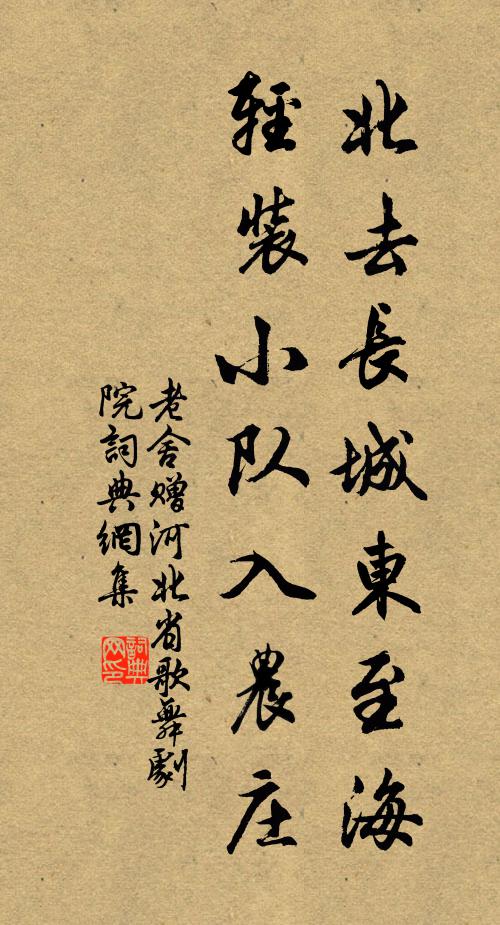 北去長城東至海
輕裝小队入農庄
老舍赠河北省歌舞劇
院詞典網集
詞典
网印